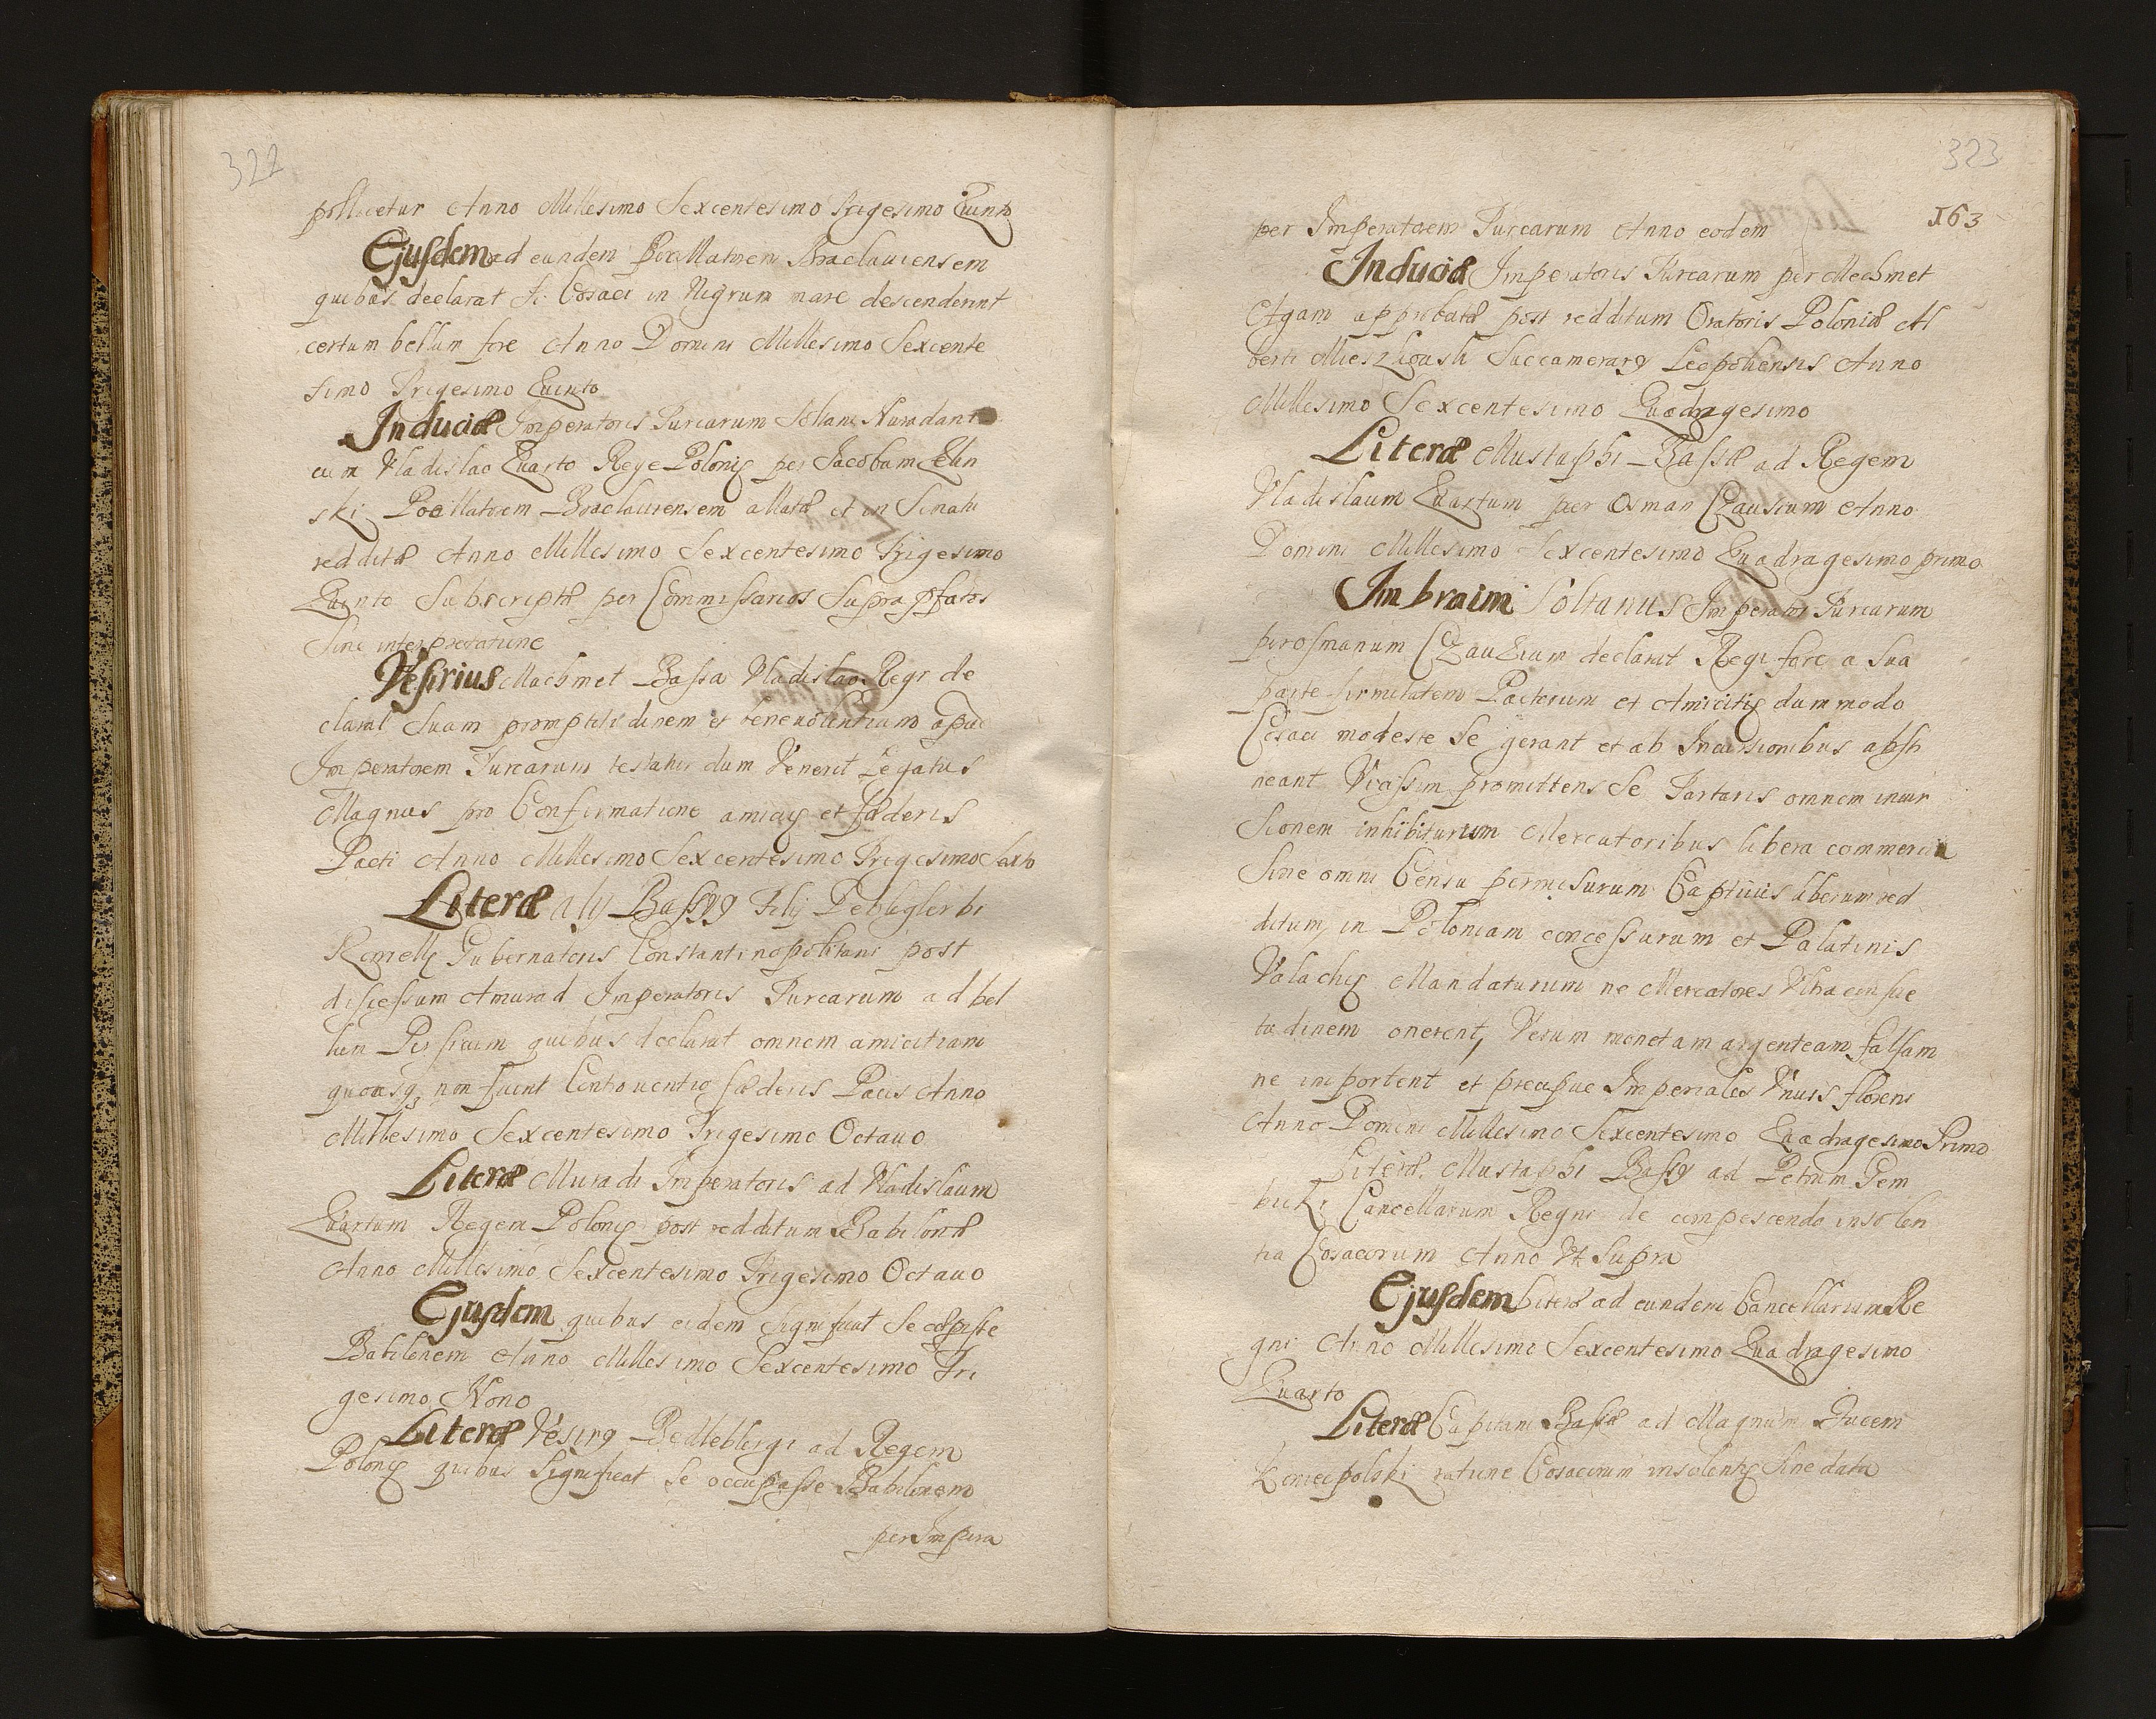 322
pollicetur Anno Millesimo Sexcentesimo Trigesimo Quinto
Ejusdem ad eundem Pocillatorem Braclauiensem
quibus declarat si Cosaci in Nigrum mare descenderint
certum bellum fore Anno Domini Millesimo Sexcente
simo Trigesimo Quinto
Induciæ Imperatoris Turcarum Soltani
cum Vladislao Quarto Rege Polonię per Jacobum Zelin
ski Pocillatorem Braclauiensem allatæ et in Senatu
redditæ Anno Millesimo Sexcentesimo Trigesimo
Quinto Subscriptæ per Commissarios Supra
Sine interpretatione
Vesirius Machmet Bassa Vladislao Regi de
clarat Suam promptitudinem et beneuolentiam apud
Imperatorem Turcarum testatur dum Venerit Legatus
Magnus pro Confirmatione et fæderis
Pacti Anno Millesimo Sexcentesimo Trigesimo Sexto
Literæ aly Bassę Filij
Gubernatoris Constantinopolitani post
discessum Amurad Imperatoris Turcarum ad bel
lum Persicum quibus declarat omnem amicitiam
quousq; non fuerit Controuentio fæderis Pacis Anno
Millesimo Sexcentesimo Trigesimo Octauo
Literæ Muradi Imperatoris ad Vladislaum
Quartum Regem Polonię post redditum Babiloniæ
Anno Millesimo Sexcentesimo Trigesimo Octauo
Ejusdem quibus eidem significat Se cæpisse
Babilonem Anno Millesimo Sexcentesimo Tri
gesimo Nono
Literæ ad Regem
Polonię quibus Significat Se occupasse Babilonem
per Impera
323
163
per Imperatorem Turcarum Anno eodem
Induciæ Imperatoris Turcarum per Mechmet
Agam approbatæ post redditum Oratoris Poloniæ Al
berti Miaskowski Succamerarij Leopoliensis Anno
Millesimo Sexcentesimo Quadragesimo
Literæ Mustaphi Bassæ ad Regem
Vladislaum Quartum per Osman Czausium Anno
Domini Millesimo Sexcentesimo Quadragesimo primo
Imbraim Soltanus Imperator Turcarum
per osmanum CZauZium declarat Regi fore a Sua
parte firmitatem Pactorum et Amicitię dummodo
Cosaci modeste Se gerant et ab Incursionibus absti
neant Vicissim promittens Se Tartaris omnem incur
Sionem inhibiturum Mercatoribus libera commercia
Sine omni Censu permisurum Captiuis liberum red
ditum, in Poloniam concessurum et Palatinis
Valachię Mandaturum ne Mercatores Vltra consue
tudinem onerent, Verum monetam argenteam falsam
ne important et precipue Imperiales Vnius floreni
Anno Domini Millesimo Sexcentesimo Quadragesimo Primo
Literæ Mustaphi Bassę ad Petrum Gem
bicki Cancellarium Regni de compescenda insolen
tia Cosacorum Anno Vt Supra
Ejusdem Literæ ad eundem Cancellarium Re
gni Anno Millesimo Sexcentesimo Quadragesimo
Quarto
Literæ Capitani Bassæ ad Magnum Ducem
Koniecpolski ratione Cosacorum insolentię Sine data